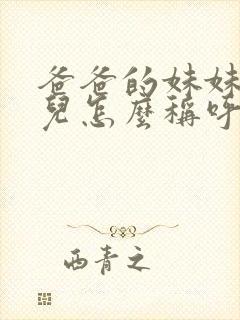 爸爸的妹妹
兒怎麼稱呼
西青之